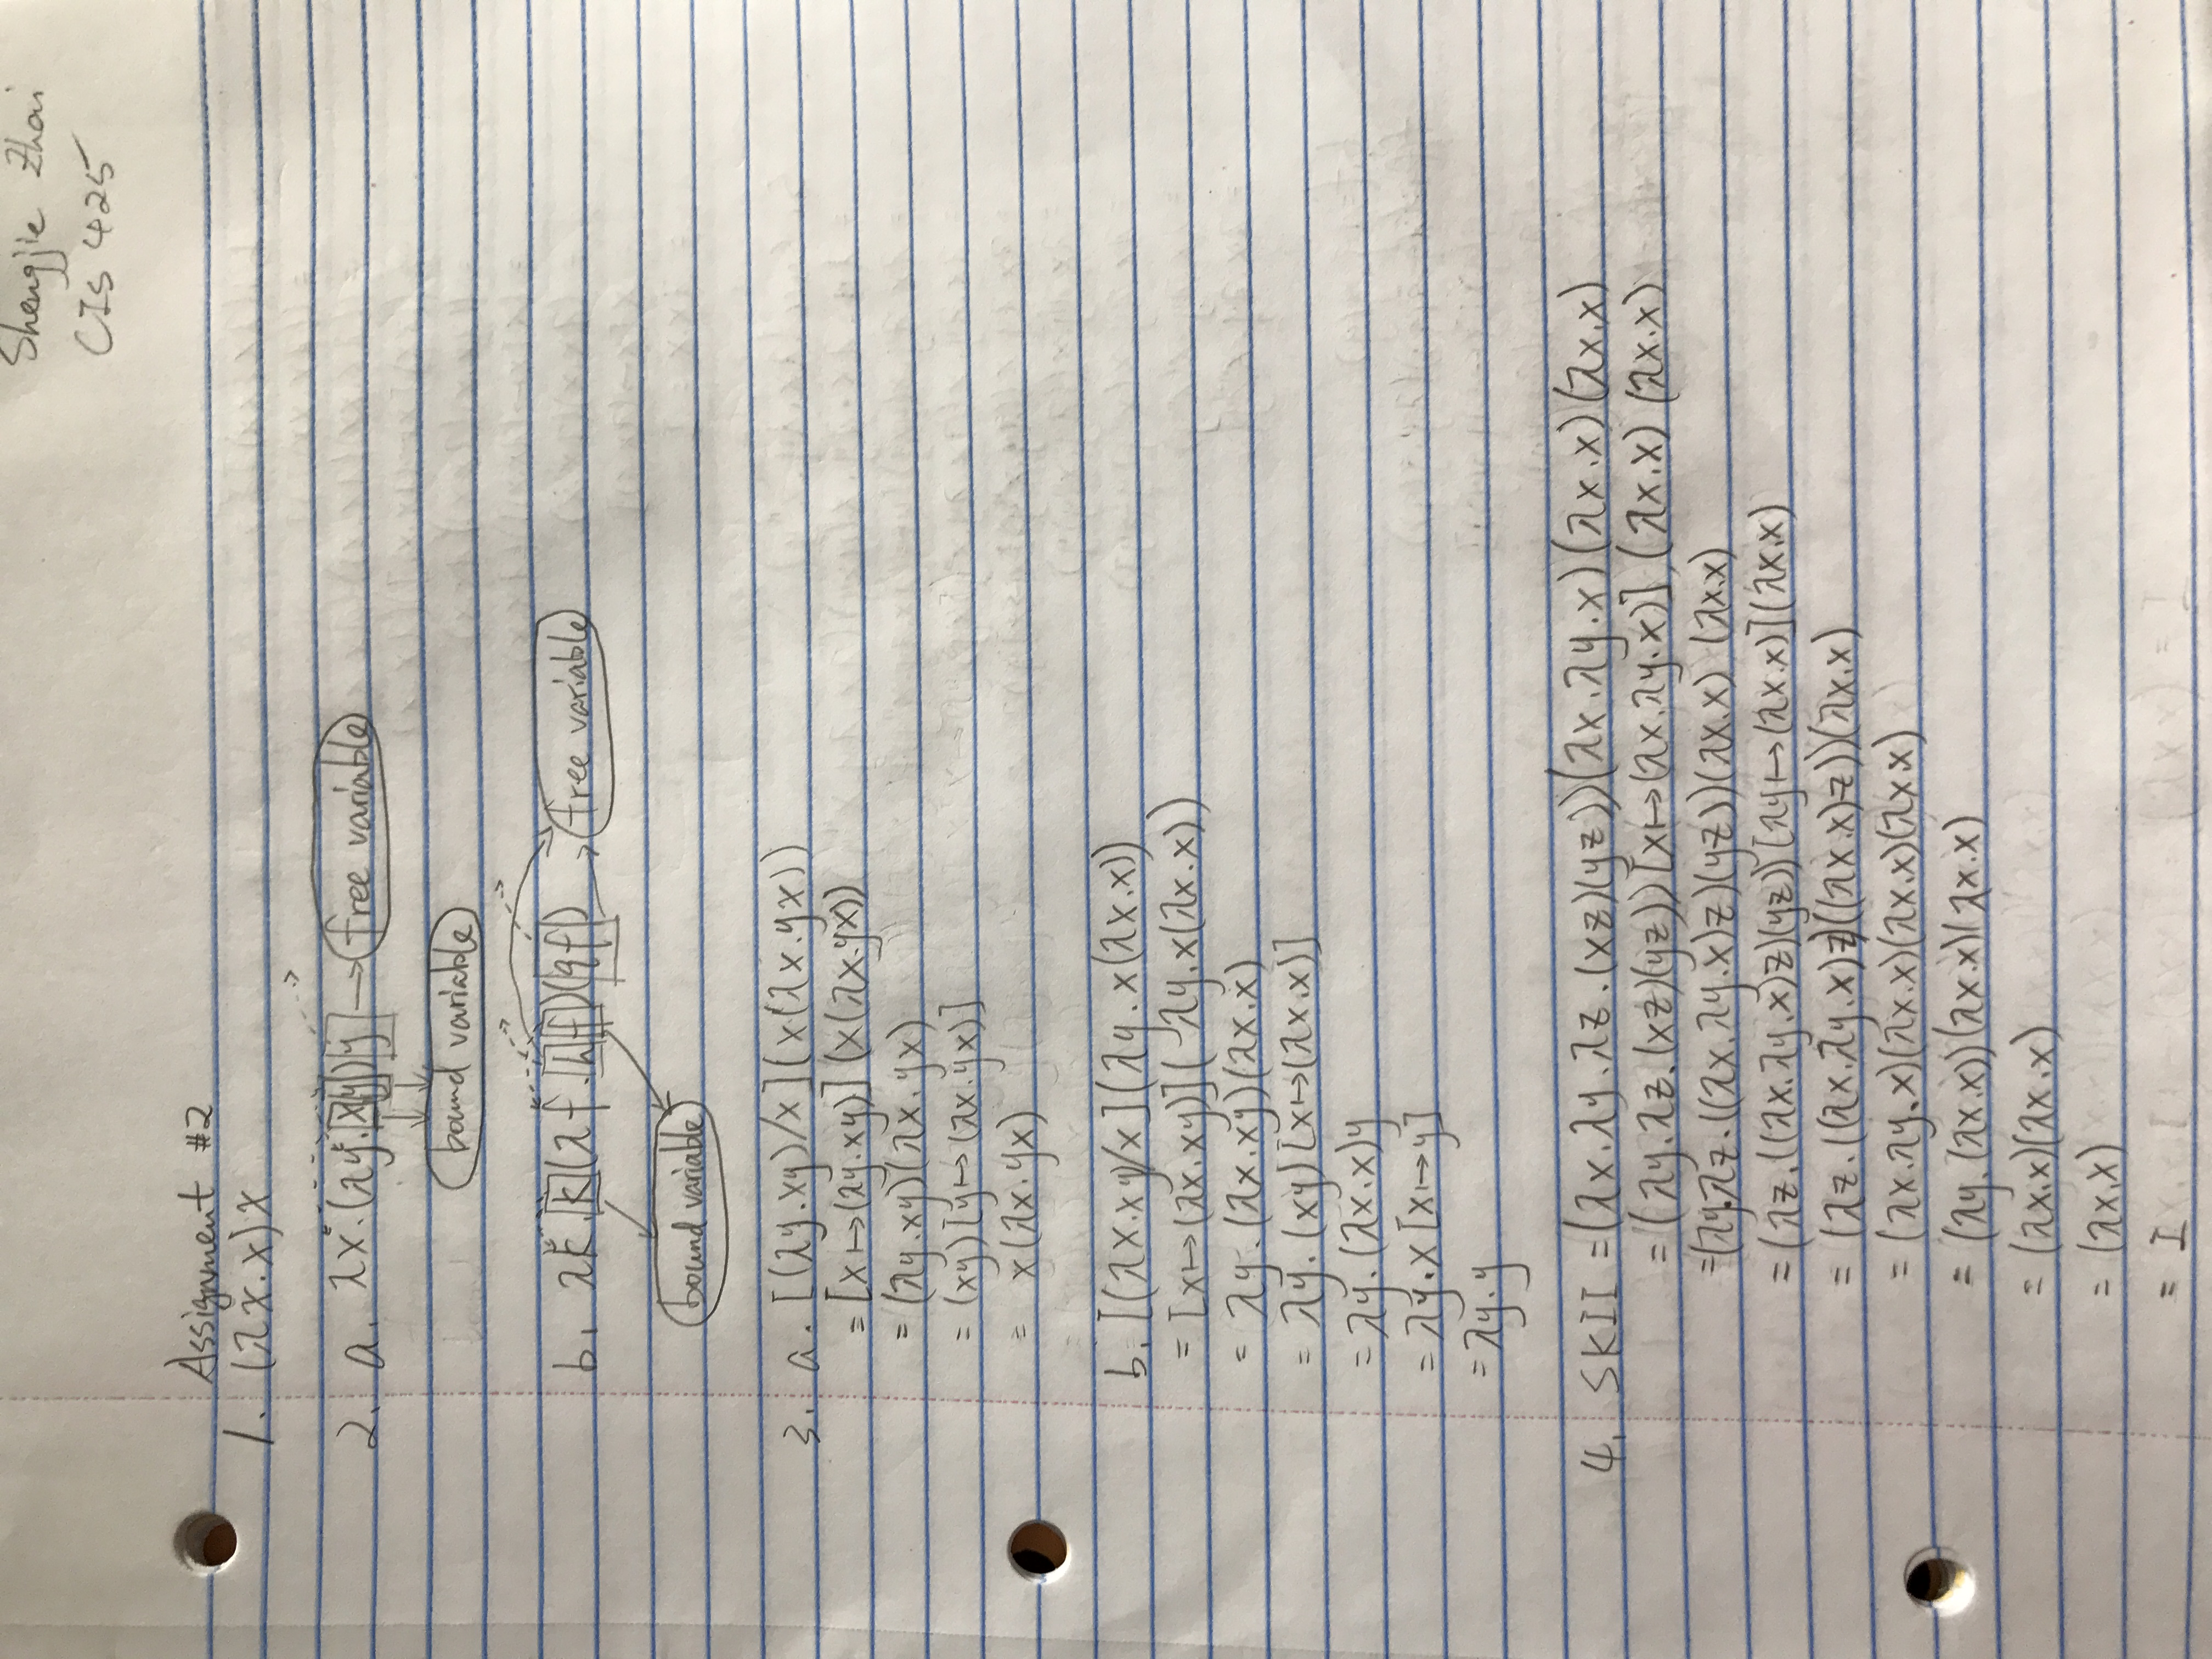 Shengjie Zhai
CIS 425
Assignment #2
1. (λx.x)x
2. a. λx.(λy.xy)y → free variable
bound variable
b. λk.k(λf.hf)(qf) free variable
bound variable
3. a. [(λy.xy)/x](x(λx.yx))
= [x↦(λy.xy)](x(λx.yx))
= (λy.xy)(λx.yx)
= (xy)[y↦(λx.yx)]
= x(λx.yx)
b. [(λx.xy)/x](λy.x(λx.x))
= [x↦(λx.xy)](λy.x(λx.x))
= λy.(λx.xy)(λx.x)
= λy.(xy)[x↦(λx.x)]
= λy.(λx.x)y
= λy.x[x↦y]
= λy.y
4. SKII = (λx.λy.λz.(xz)(yz))(λx.λy.x)(λx.x)(λx.x)
= (λy.λz.(xz)(yz))[x↦(λx.λy.x)](λx.x)(λx.x)
= (λy.λz.((λx.λy.x)z)(yz))(λx.x)(λx.x)
= (λz.((λx.λy.x)z)(yz))[λy↦(λx.x)](λx.x)
= (λz.((λx.λy.x)z)((λx.x)z))(λx.x)
= (λx.λy.x)(λx.x)(λx.x)(λx.x)
= (λy.(λx.x))(λx.x)(λx.x)
= (λx.x)(λx.x)
= (λx.x)
= I